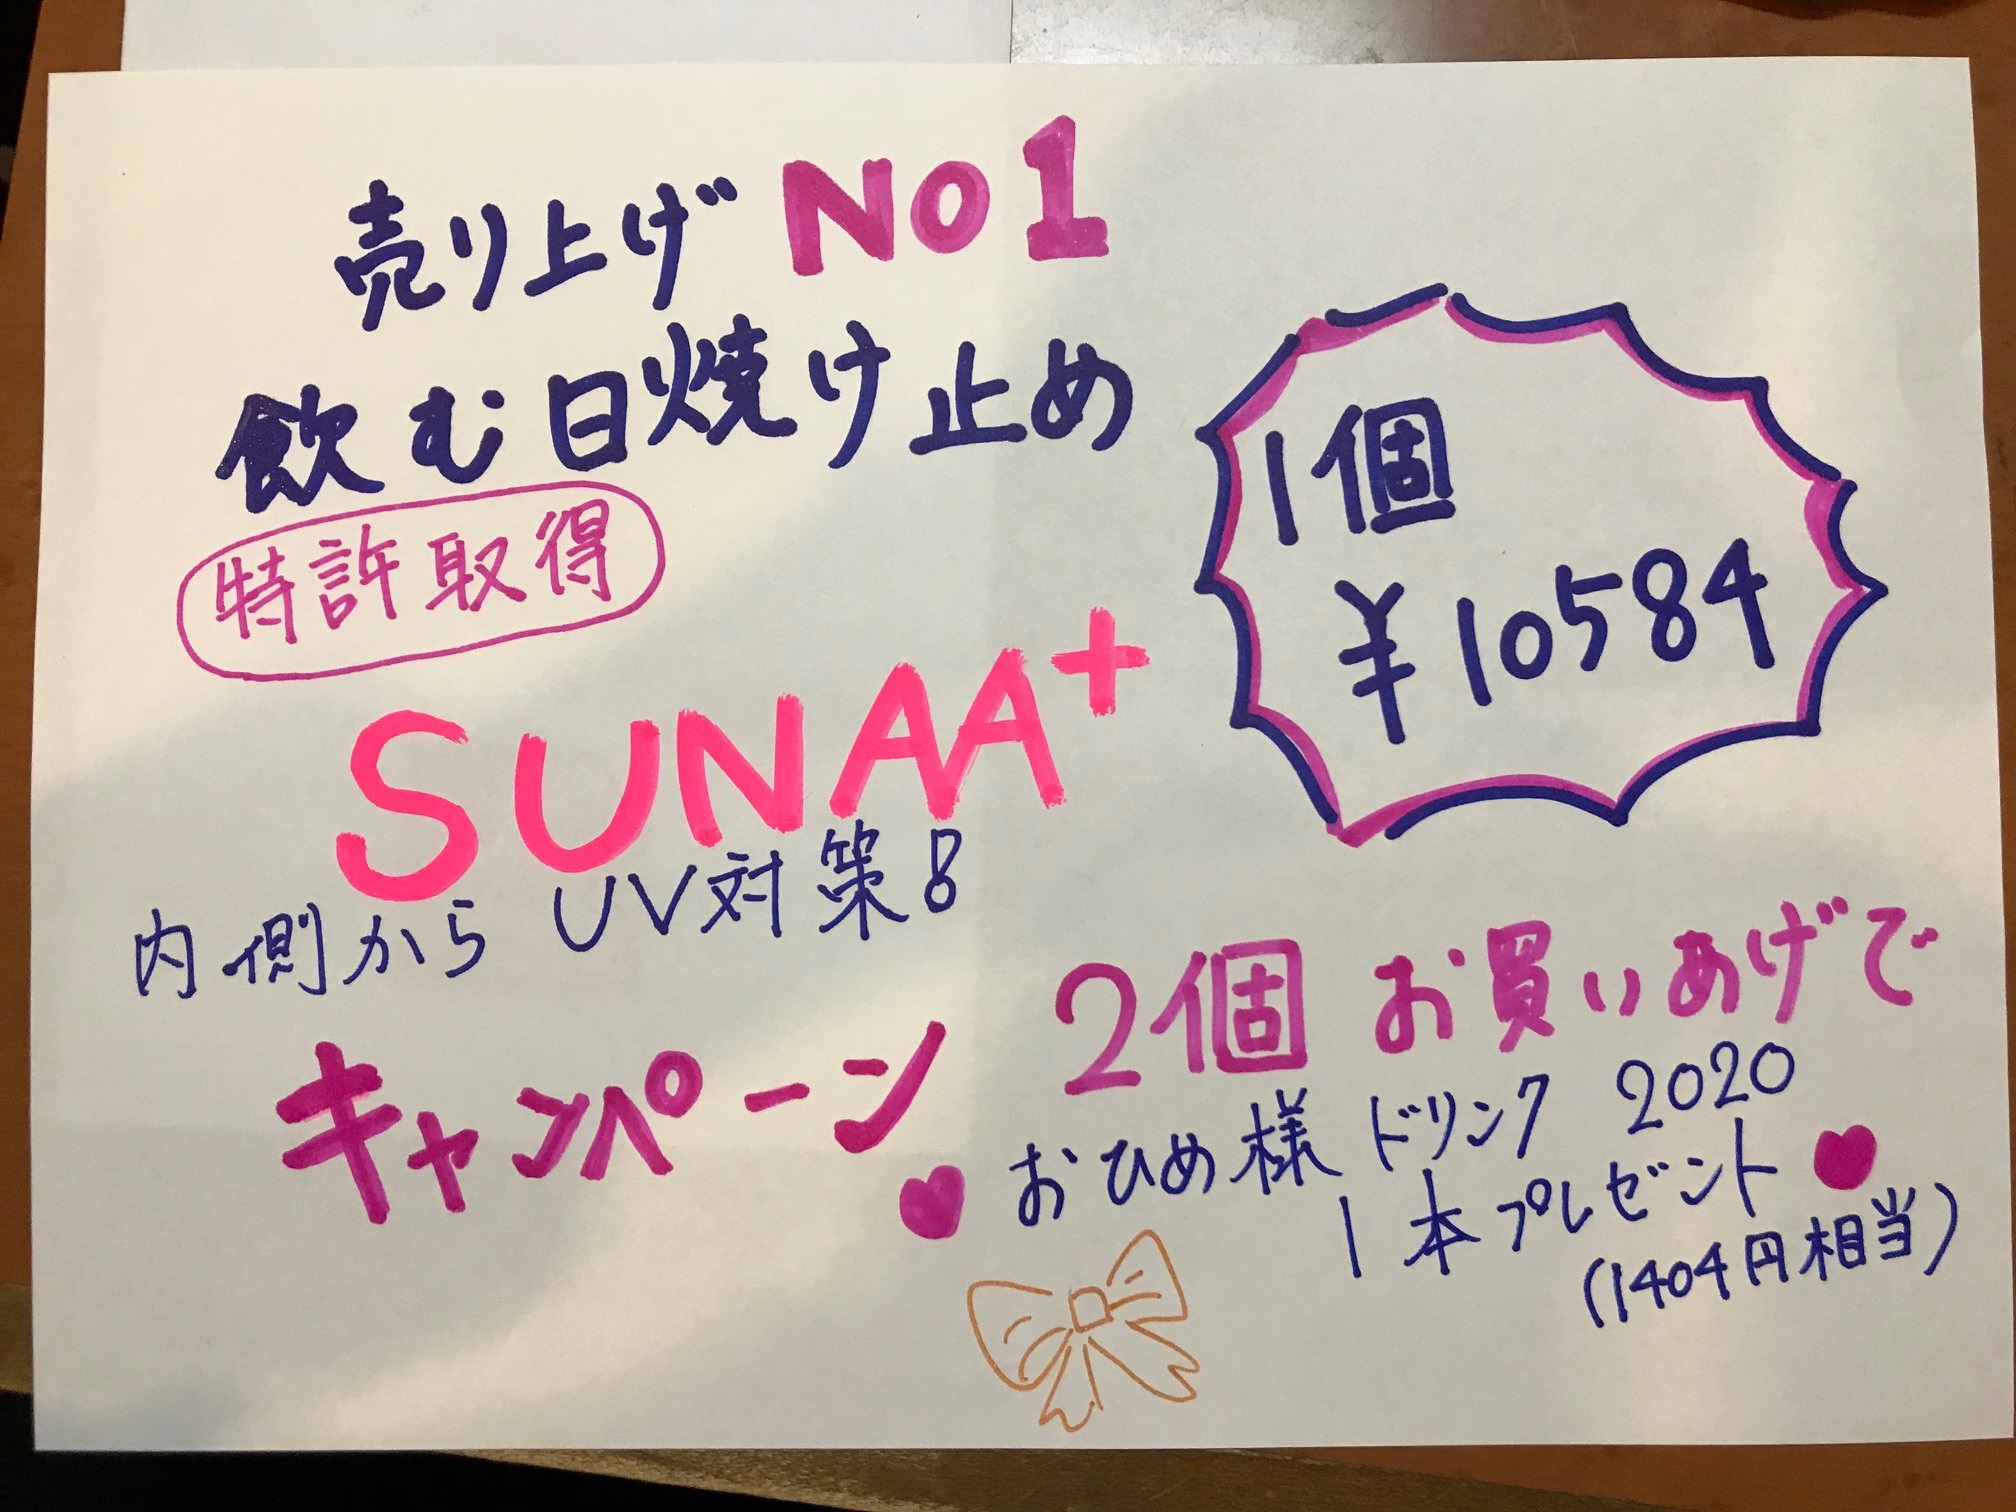 売り上げ No1
飲む日焼け止め
特許取得
SUNAA+
内側から UV対策!
1個
¥10584
キャンペーン
2個 お買いあげで
おひめ様ドリンク 2020
1本プレゼント
(1404円相当)